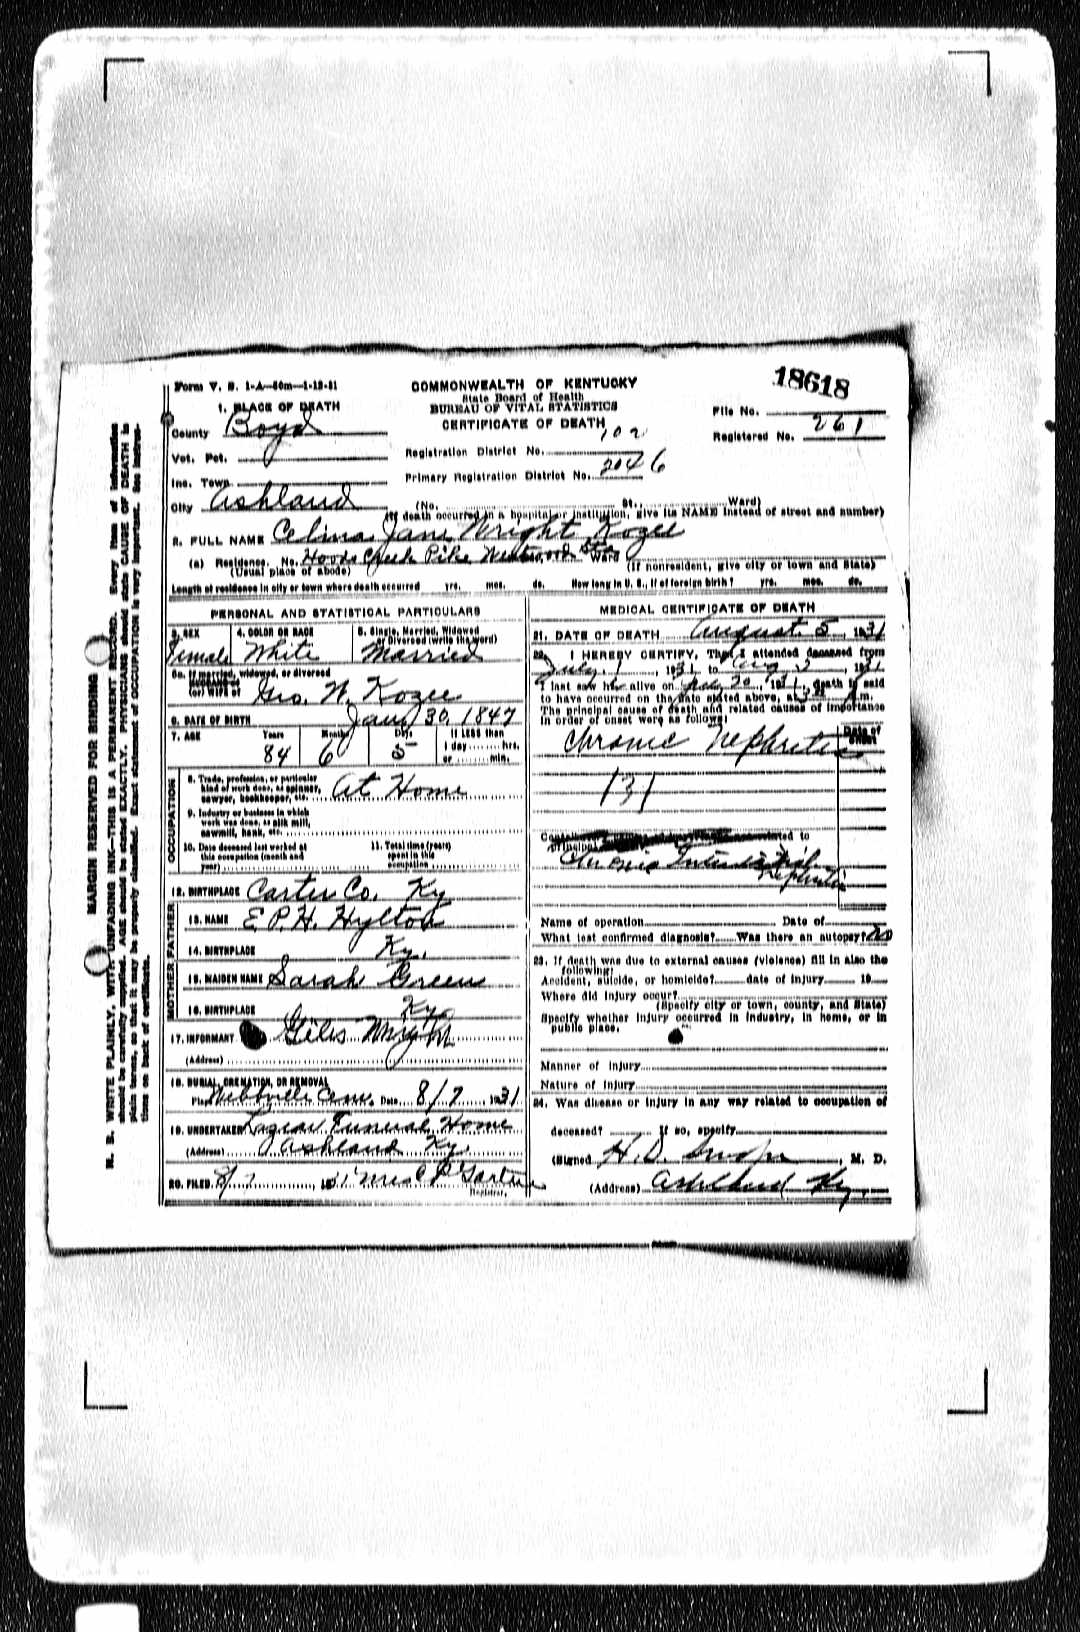 18618
Form V. S. 1-A—50m—1-12-31
COMMONWEALTH OF KENTUCKY
State Board of Health
BUREAU OF VITAL STATISTICS
CERTIFICATE OF DEATH
File No.
Registered No. 261
1. PLACE OF DEATH
County Boyd
Vot. Pct.
Inc. Town
City Ashland
Registration District No. 102
Primary Registration District No. 2046
(No. St., Ward)
(If death occurred in a hospital or institution, give its NAME instead of street and number)
2. FULL NAME Celina Jane Wright Kozee
(a) Residence. No. Hoods Creek Pike Westwood Sta Ward
(Usual place of abode)
(If nonresident, give city or town and State)
Length of residence in city or town where death occurred yrs. mos. ds. How long in U. S., if of foreign birth? yrs. mos. ds.
PERSONAL AND STATISTICAL PARTICULARS
3. SEX
Female
4. COLOR OR RACE
White
5. Single, Married, Widowed
or Divorced (write the word)
Married
5a. If married, widowed, or divorced
HUSBAND of
(or) WIFE of Geo. W. Kozee
6. DATE OF BIRTH Jan. 30, 1847
7. AGE Years Months Days If LESS than
84 6 5
1 day hrs.
or min.
OCCUPATION
8. Trade, profession, or particular
kind of work done, as spinner,
sawyer, bookkeeper, etc. At Home
9. Industry or business in which
work was done, as silk mill,
sawmill, bank, etc.
10. Date deceased last worked at
this occupation (month and
year)
11. Total time (years)
spent in this
occupation
12. BIRTHPLACE Carter Co. Ky
FATHER
13. NAME E. P. H. Hylton
14. BIRTHPLACE Ky.
MOTHER
15. MAIDEN NAME Sarah Green
16. BIRTHPLACE Ky.
17. INFORMANT Giles Wright
(Address)
18. BURIAL, CREMATION, OR REMOVAL
Place Webbville Cem. Date 8/7 1931
19. UNDERTAKER Lazear Funeral Home
(Address) Ashland Ky.
20. FILED 8/7, 1931 Mrs C P
Registrar.
MEDICAL CERTIFICATE OF DEATH
21. DATE OF DEATH August 5, 1931
22. I HEREBY CERTIFY, That I attended deceased from
July 1, 1931, to Aug 5, 1931
I last saw her alive on 30, 1931, death is said
to have occurred on the date stated above, at m.
The principal cause of death and related causes of importance
in order of onset were as follows:
Date of
onset
Chronic Nephritis
131
Chronic Interstitial
Nephritis
Name of operation Date of
What test confirmed diagnosis? Was there an autopsy? No
23. If death was due to external causes (violence) fill in also the
following:
Accident, suicide, or homicide? date of injury 19
Where did injury occur?
(Specify city or town, county, and State)
Specify whether injury occurred in industry, in home, or in
public place.
Manner of injury
Nature of injury
24. Was disease or injury in any way related to occupation of
deceased? If so, specify
(Signed H. D. M. D.
(Address) Ashland Ky.
MARGIN RESERVED FOR BINDING
N. B. WRITE PLAINLY, WITH UNFADING INK—THIS IS A PERMANENT RECORD. Every item of information
should be carefully supplied. AGE should be stated EXACTLY. PHYSICIANS should state CAUSE OF DEATH in
plain terms, so that it may be properly classified. Exact statement of OCCUPATION is very important. See instruc-
tions on back of certificate.